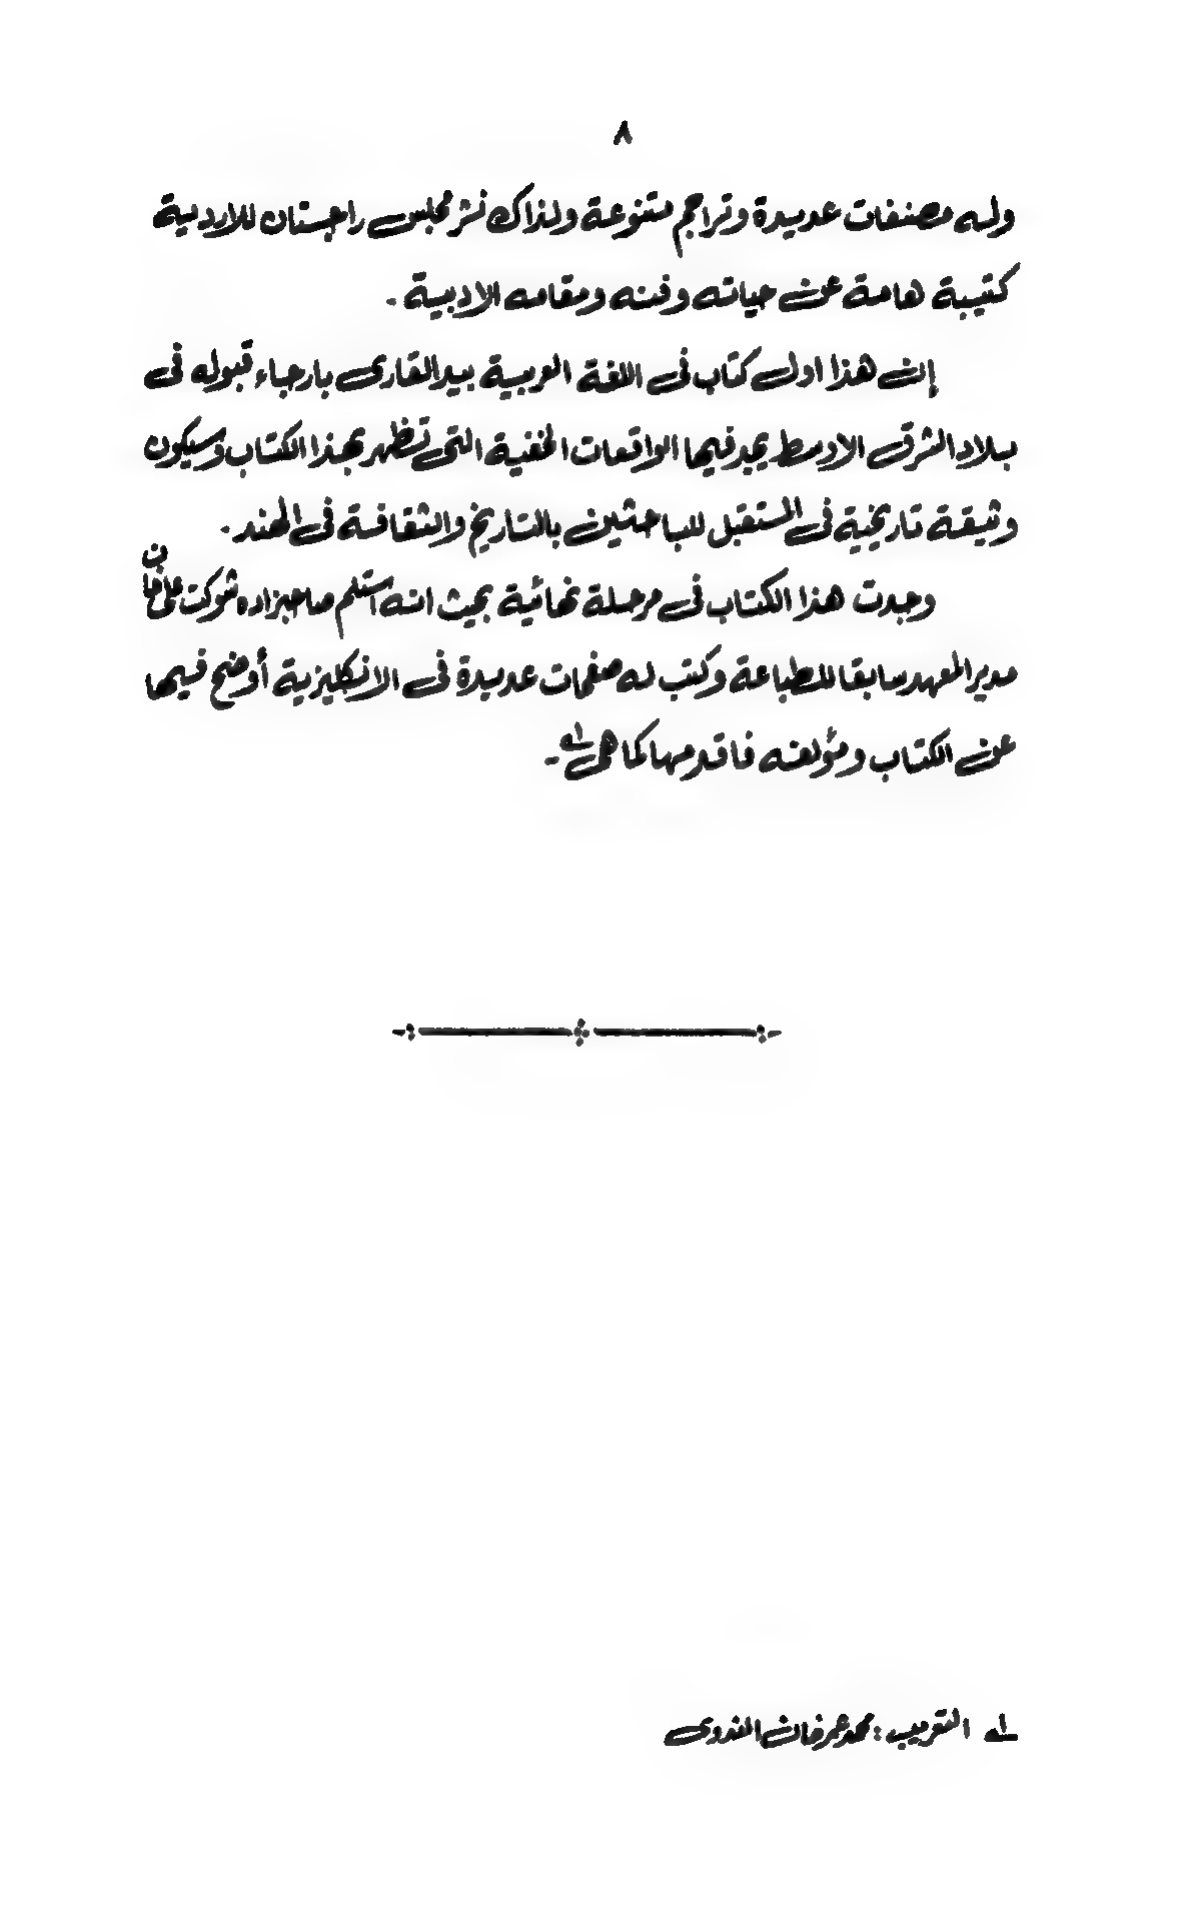 ٨
وله مصنفات عديدة وتراجم متنوعة ولذاك نشر مجلس راجستان للاردية
كتيبة هامة عن حياته وفنه ومقامه الادبية.
إن هذا اول كتاب فى اللغة العربية بيد القارى بارجاء قبوله فى
بلاد الشرق الاوسط يجد فيها الواقعات الخفية التى تظهر بهذا الكتاب وسيكون
وثيقة تاريخية فى المستقبل للباحثين بالتاريخ والثقافة فى الهند.
وجدت هذا الكتاب فى مرحلة نهائية بحيث انه استلم صاحبزاده شوكت على خان
مدير المعهد سابقا للطباعة وكتب له صفحات عديدة فى الانكليزية أوضح فيها
عن الكتاب ومؤلفه فاقدمها كما هى ــلـه.
ــلـه التعريب: محمد عمر خان الندوى